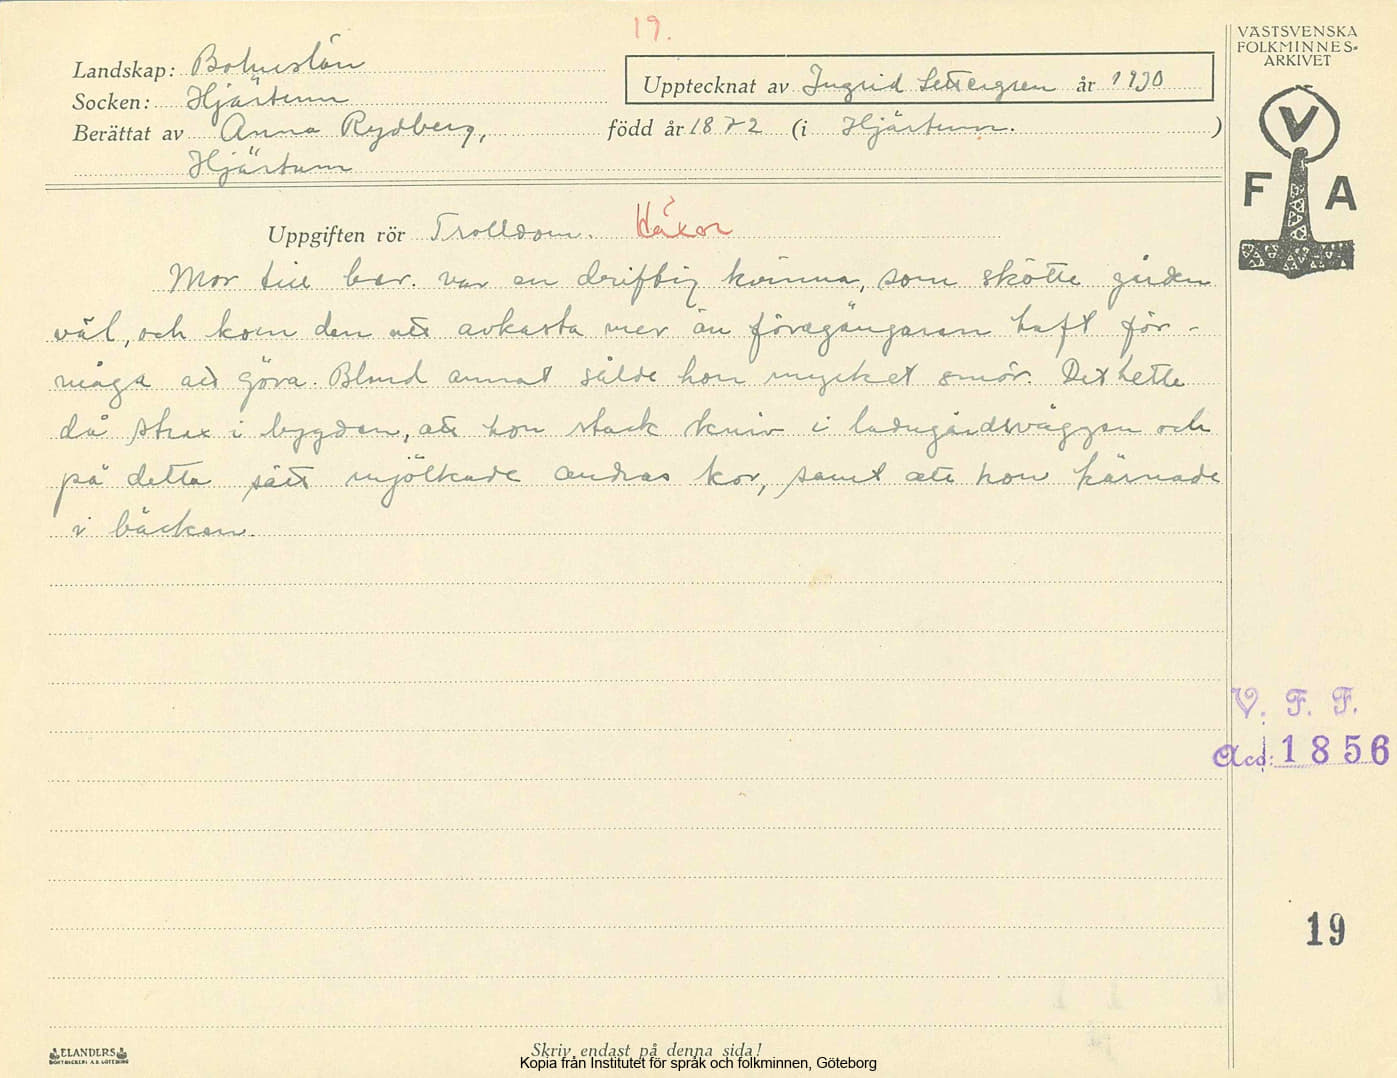 19.
VÄSTSVENSKA
FOLKMINNES-
ARKIVET
Landskap: Bohuslän
Upptecknat av Ingrid Settergren år 1930
Socken: Hjärtum
Berättat av Anna Rydberg, född år 1872 (i Hjärtum.)
Hjärtum
V
F A
Uppgiften rör Trolldom. Häxor
Mor till ber. var en driftig kvinna, som skötte gården
väl, och kom den att avkasta mer än föregångaren haft för-
måga att göra. Bland annat sålde hon mycket smör. Det hette
då strax i bygden, att hon stack kniv i ladugårdsväggen och
på detta sätt mjölkade andras kor, samt att hon kärnade
i bäcken.
V. F. F.
Acc: 1856
19
ELANDERS
BOKTRYCKERI A.B. GÖTEBORG
Skriv endast på denna sida!
Kopia från Institutet för språk och folkminnen, Göteborg